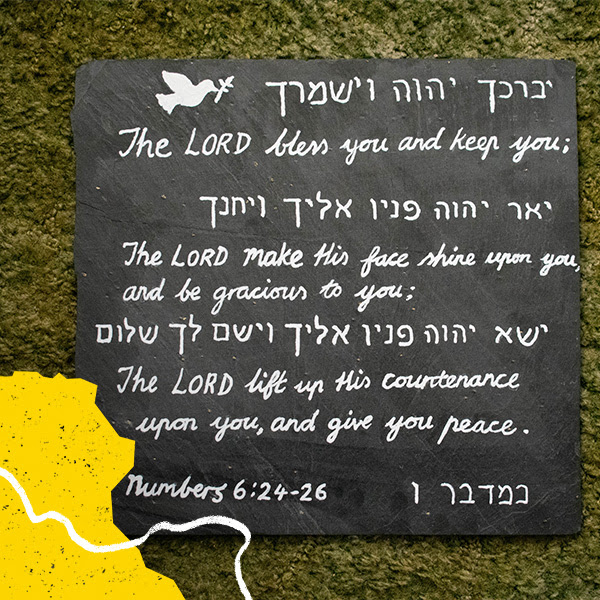 יברכך יהוה וישמרך
The LORD bless you and keep you;
יאר יהוה פניו אליך ויחנך
The LORD make His face shine upon you,
and be gracious to you;
ישא יהוה פניו אליך וישם לך שלום
The LORD lift up His countenance
upon you, and give you peace.
Numbers 6:24-26 במדבר ו